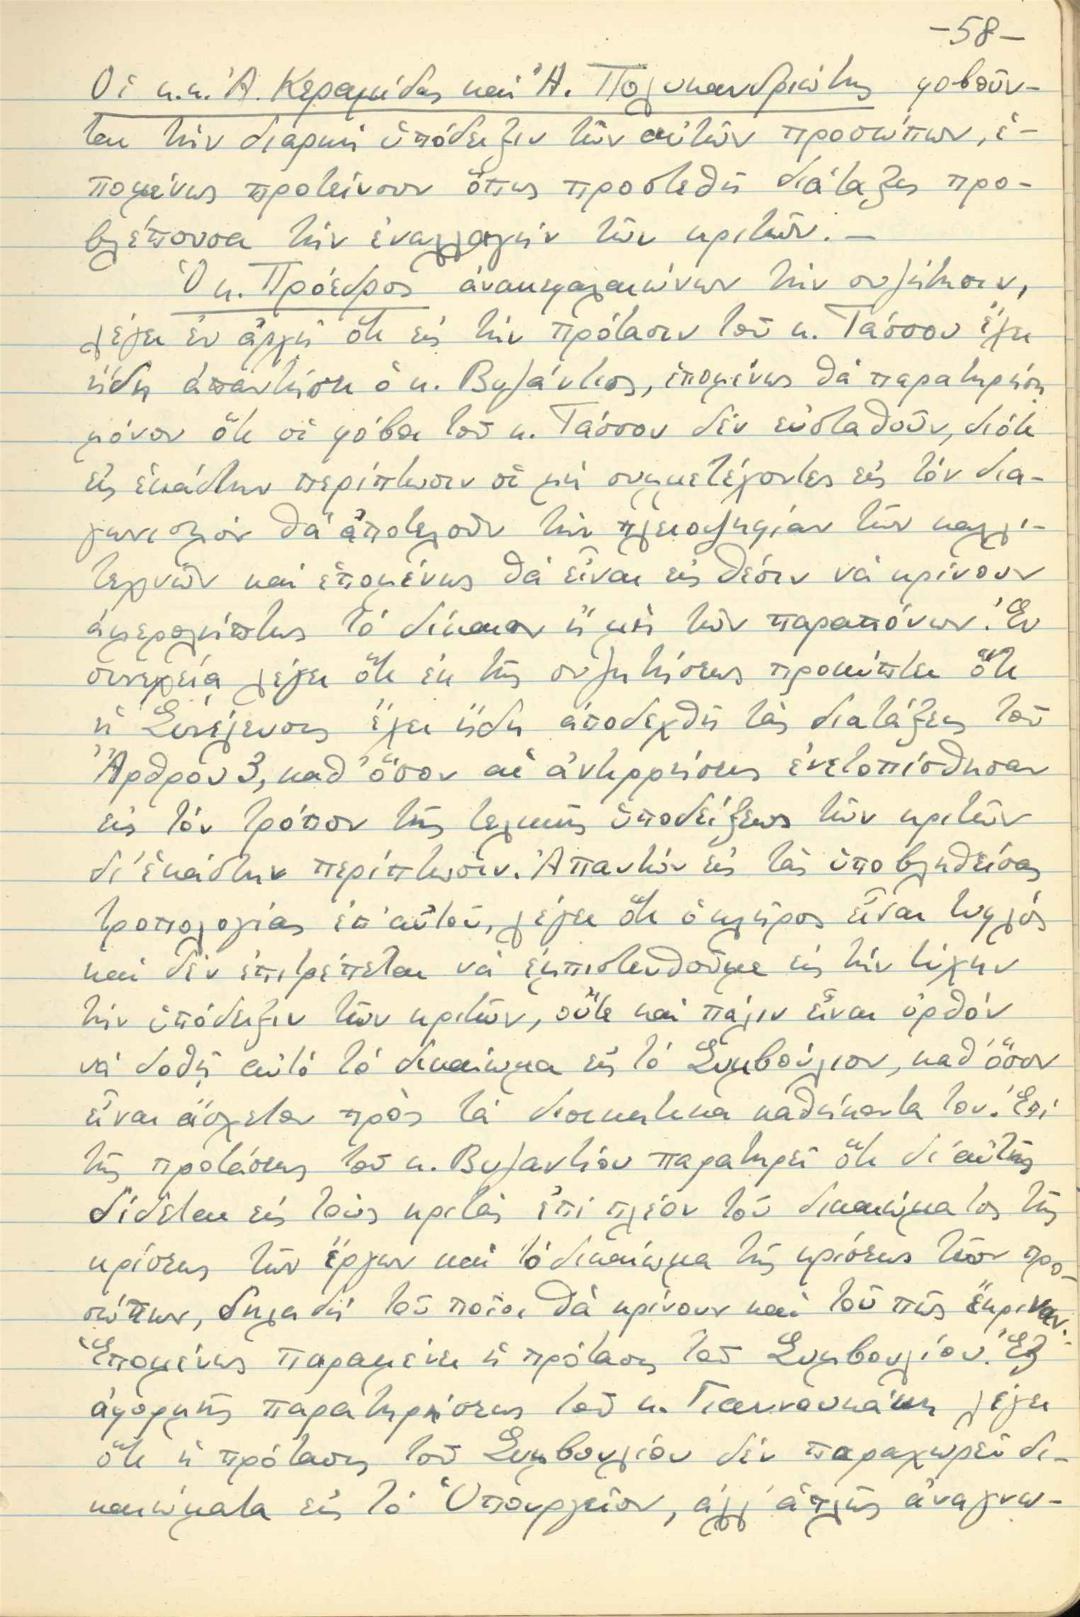 -58-
Οἱ κ.κ. Ἀ. Κεραμίδας καὶ Ἀ. Πολυκανδριώτης φοβοῦν-
ται τὴν διαρκῆ ὑπόδειξιν τῶν αὐτῶν προσώπων, ἑ-
πομένως προτείνουν ὅπως προστεθῇ διάταξις προ-
βλέπουσα τὴν ἐναλλαγὴν τῶν κριτῶν. —
Ὁ κ. Πρόεδρος ἀνακεφαλαιώνων τὴν συζήτησιν,
λέγει ἐν ἀρχῇ ὅτι εἰς τὴν πρότασιν τοῦ κ. Τάσσου ἔχει
ἤδη ἀπαντήσει ὁ κ. Βυζάντιος, ἑπομένως θὰ παρατηρήσῃ
μόνον ὅτι οἱ φόβοι τοῦ κ. Τάσσου δὲν εὐσταθοῦν, διότι
εἰς ἑκάστην περίπτωσιν οἱ μὴ συμμετέχοντες εἰς τὸν δια-
γωνισμὸν θὰ ἀποτελοῦν τὴν πλειοψηφίαν τῶν καλλι-
τεχνῶν καὶ ἑπομένως θὰ εἶναι εἰς θέσιν νὰ κρίνουν
ἀμερολήπτως τὸ δίκαιον ἢ μὴ τῶν παραπόνων. Ἐν
συνεχείᾳ λέγει ὅτι ἐκ τῆς συζητήσεως προκύπτει ὅτι
ἡ Συνέλευσις ἔχει ἤδη ἀποδεχθῆ τὰς διατάξεις τοῦ
Ἄρθρου 3, καθ' ὅσον αἱ ἀντιρρήσεις ἐνετοπίσθησαν
εἰς τὸν τρόπον τῆς τελικῆς ὑποδείξεως τῶν κριτῶν
δι' ἑκάστην περίπτωσιν. Ἀπαντῶν εἰς τὰς ὑποβληθείσας
τροπολογίας ἐπ' αὐτοῦ, λέγει ὅτι ὁ κλῆρος εἶναι τυφλός
καὶ δὲν ἐπιτρέπεται νὰ ἐμπιστευθοῦμε εἰς τὴν τύχην
τὴν ὑπόδειξιν τῶν κριτῶν, οὔτε καὶ πάλιν εἶναι ὀρθόν
νὰ δοθῇ αὐτὸ τὸ δικαίωμα εἰς τὸ Συμβούλιον, καθ' ὅσον
εἶναι ἄσχετον πρὸς τὰ διοικητικὰ καθήκοντά του. Ἐπὶ
τῆς προτάσεως τοῦ κ. Βυζαντίου παρατηρεῖ ὅτι δι' αὐτῆς
δίδεται εἰς τοὺς κριτὰς ἐπὶ πλέον τοῦ δικαιώματος τῆς
κρίσεως τῶν ἔργων καὶ τὸ δικαίωμα τῆς κρίσεως τῶν προ-
σώπων, δηλαδὴ τοῦ ποῖοι θὰ κρίνουν καὶ τοῦ πῶς ἔκριναν.
Ἑπομένως παραμένει ἡ πρότασις τοῦ Συμβουλίου. Ἐξ
ἀφορμῆς παρατηρήσεως τοῦ κ. Γιαννουκάκη λέγει
ὅτι ἡ πρότασις τοῦ Συμβουλίου δὲν παραχωρεῖ δι-
καιώματα εἰς τὸ Ὑπουργεῖον, ἀλλ' ἁπλῶς ἀναγνω-